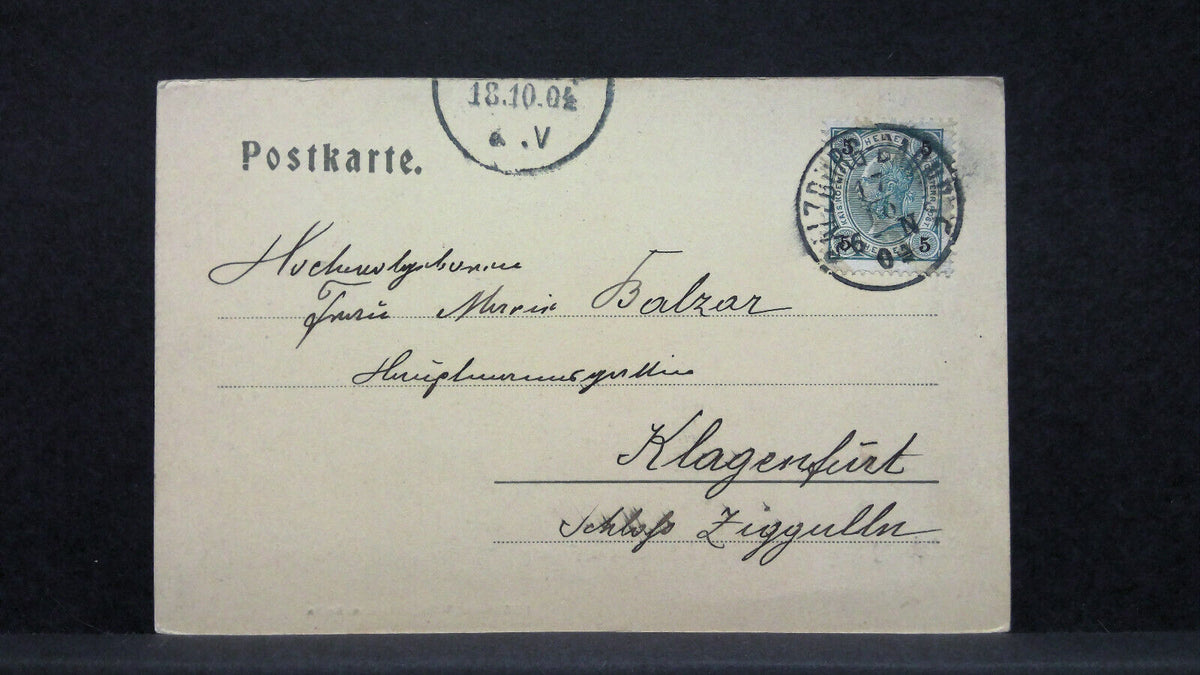 18.10.04
a .V
Postkarte.
5 HELLER 5
5 5
Hochwolgeboren
Frau Maria Balzar
Hauptmannsgattin
Klagenfurt
Schloß Ziggulln